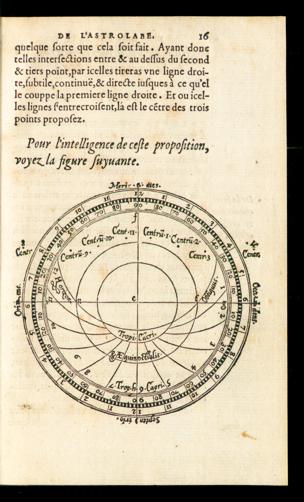 DE L'ASTROLABE. 16
quelque sorte que cela soit fait. Ayant donc
telles intersections entre & au dessus du second
& tiers point, par icelles tireras vne ligne droi-
te, subtile, continuë, & directe iusques à ce qu'el
le couppe la premiere ligne droite. Et ou icel-
les lignes s'entrecroisent, là est le cētre des trois
points proposez.
Pour l'intelligence de ceste proposition,
voyez la figure suyuante.
Meri- dies.
Cent. 11.
Centrū. 1.
Centrū. 10.
Centrū. 2.
Centrū. 9.
Centr. 3
f
e
Tropi. Cācri.
Æquinoctialis.
Trop. Capri.
Septen trio.